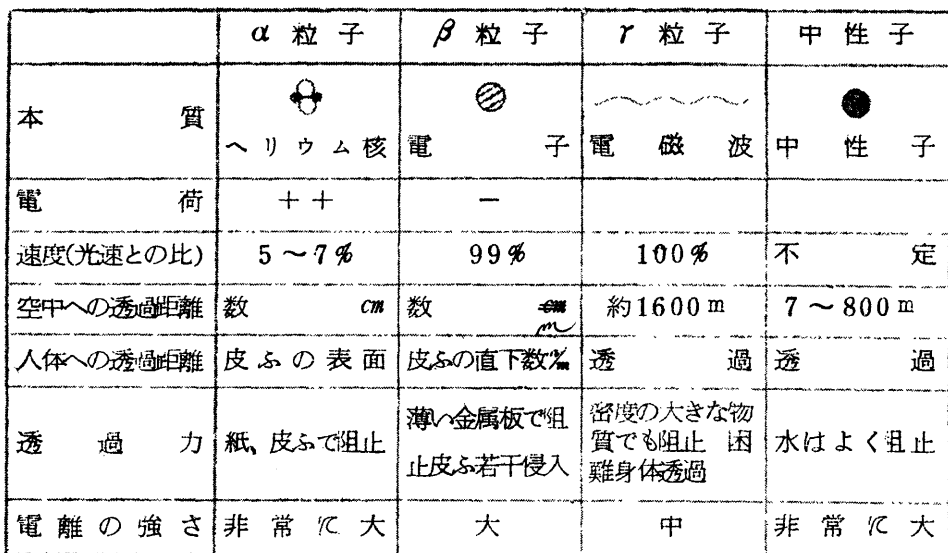 α 粒 子 β 粒 子 γ 粒 子 中 性 子
本 質 ヘリウム核 電 子 電 磁 波 中 性 子
電 荷 ++ −
速度(光速との比) 5～7% 99% 100% 不 定
空中への透過距離 数 cm 数 m 約1600m 7～800m
人体への透過距離 皮ふの表面 皮ふの直下数㎜ 透 過 透 過
透 過 力 紙、皮ふで阻止 薄い金属板で阻
止皮ふ若干侵入 密度の大きな物
質でも阻止 困
難身体透過 水はよく阻止
電離の強さ 非常に大 大 中 非常に大